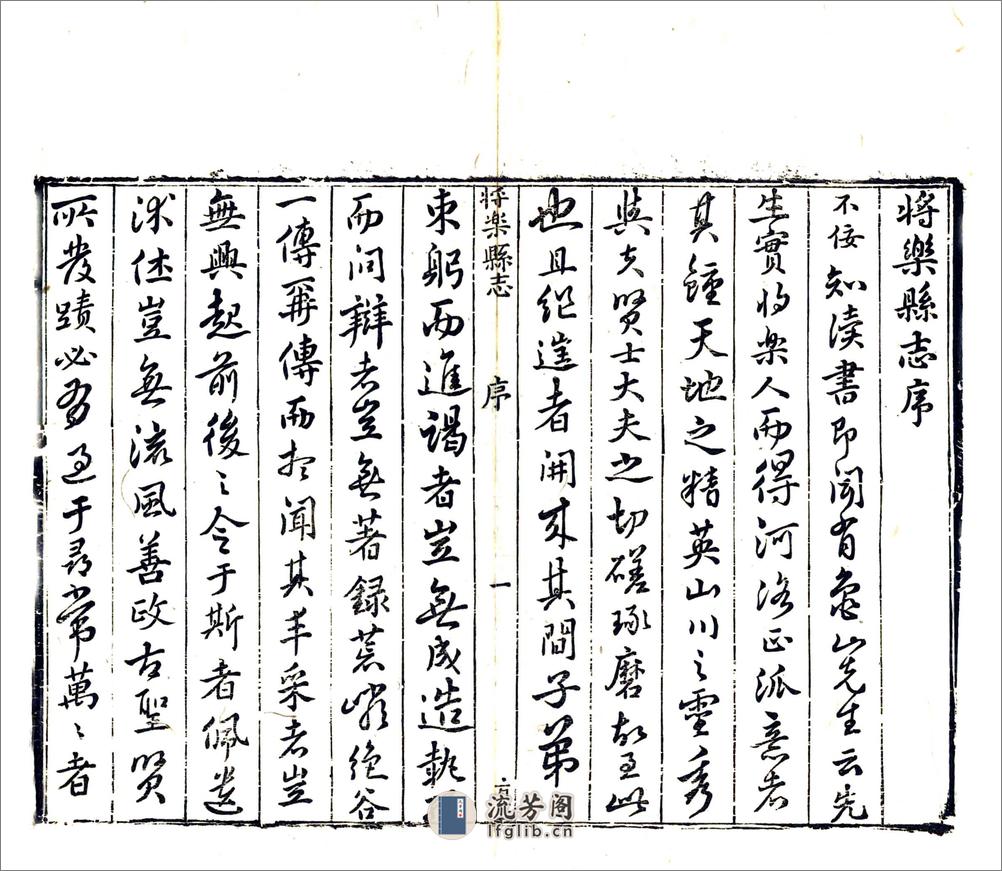 將樂縣志序
不佞知读書即闻有龜山先生云先
生實將樂人而得河洛正派意者
其鍾天地之精英山川之靈秀
與夫賢士大夫之切磋琢磨故至此
也且继逹者開来其間子弟
將樂縣志 序 一
束躬而進謁者豈無成造執
而问辯者豈無著録荒嶠绝谷
一傳再傳而想闻其丰采者豈
無興起前後之令于斯者佩遗
澤豈無流風善政古聖賢
所發蹟必有過于尋常萬萬者
流芳阁
lfglib.cn